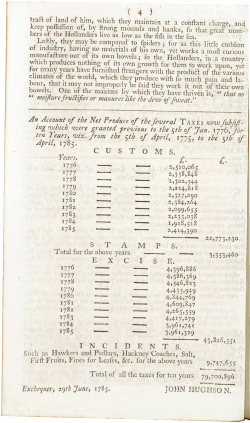 ( 4 )
tract of land of him, which they maintain at a constant charge, and
keep possession of, by strong mounds and banks, so that great num-
bers of the Hollanders live as low as the fish in the sea.
Lastly, they may be compared to spiders; for as this little emblem
of industry, having no materials of his own, yet works a most curious
manufacture out of its own bowels; so the Hollanders, in a country
which produces nothing of its own growth for them to work upon, yet
for many years have furnished strangers with the product of the various
climates of the world, which they produce with so much pains and la-
bour, that it may not improperly be said they work it out of their own
bowels. One of the maxims by which they have thriven is, " that no
" moisture fructifies or manures like the dew of sweat."
An Account of the Net Produce of the several TAXES now subsist-
ing which were granted previous to the 5th of Jan. 1776, for
ten Years, viz. from the 5th of April, 1775, to the 5th of
April, 1785.
CUSTOMS.
Years. £. £.
1776 — — 2,510,065
1777 — — 2,158,848
1778 — — 2,302,544
1779 — — 2,224,818
1780 — — 2,327,090
1781 — — 2,384,264
1782 — — 2,099,655
1783 — — 2,933,038
1784 — — 1,918,518
1785 — — 2,414,390
22,773,230
STAMPS.
Total for the above years — — 3,353,460
EXCISE.
1776 — — 4,396,886
1777 — — 4,386,369
1778 — — 4,546,823
1779 — — 4,435,949
1780 — — 4,844,769
1781 — — 4,609,847
1782 — — 4,265,559
1783 — — 4,417,279
1784 — — 3,961,741
1785 — — 3,961,329
43,826,551
INCIDENTS.
Such as Hawkers and Pedlars, Hackney Coaches, Salt,
First Fruits, Fines for Leases, &c. for the above years
9,747,655
Total of all the taxes for ten years 79,700,896
Exchequer, 29th June, 1785. JOHN HUGHSON.